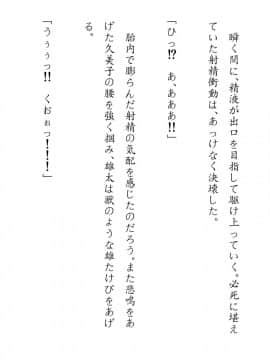 瞬く間に、精液が出口を目指して駆け上っていく。必死に堪え
ていた射精衝動は、あっけなく決壊した。
「ひっ⁉　あ、あああ‼」
胎内で膨らんだ射精の気配を感じたのだろう。また悲鳴をあ
げた久美子の腰を強く掴み、雄太は獣のような雄たけびをあげ
る。
「うぅぅっ‼　くおぉっ！！！」